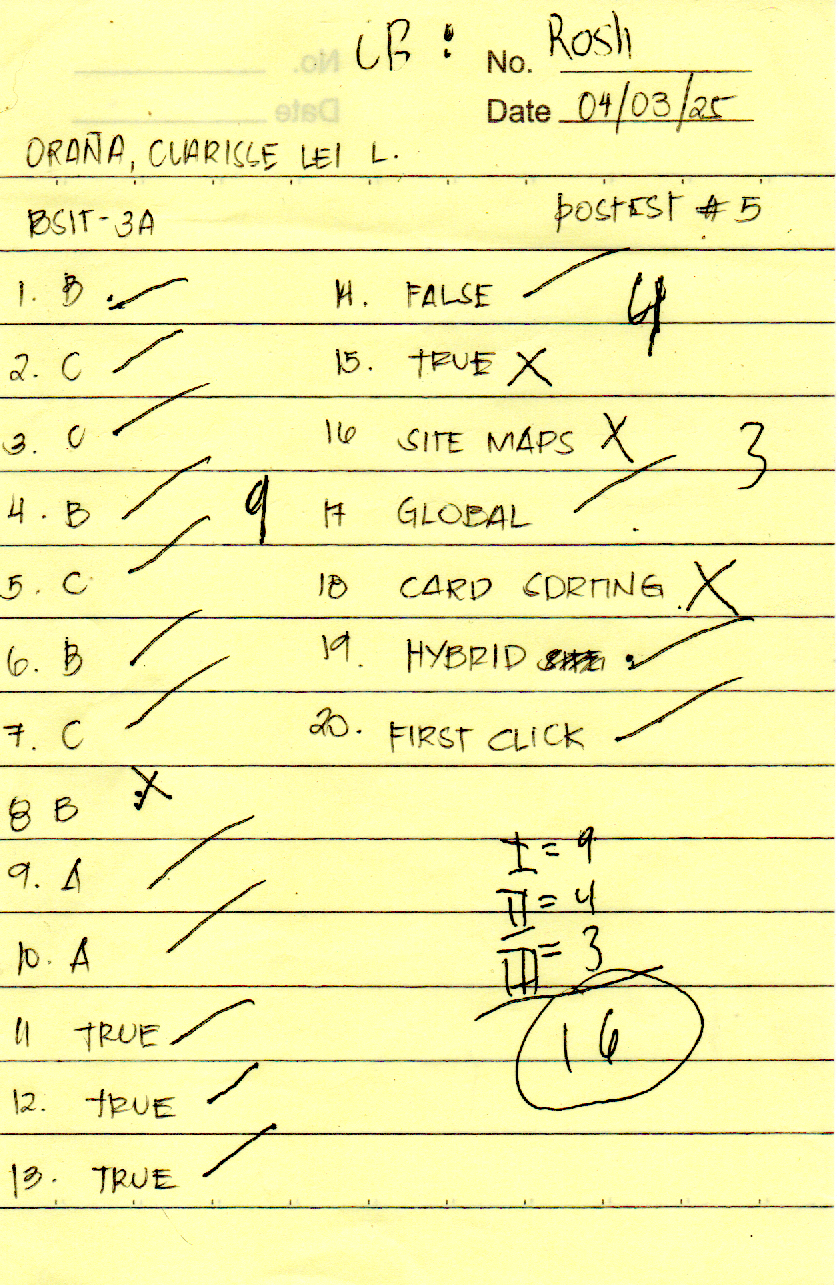 CB : No. Rosh
Date 04/03/25
ORAÑA, CLARISSE LEI L.
BSIT-3A POSTEST # 5
1. B
2. C
3. C
4. B
9
5. C
6. B
7. C
8 B
9. A
10. A
11 TRUE
12. TRUE
13. TRUE
14. FALSE
4
15. TRUE
16 SITE MAPS
3
17 GLOBAL
18 CARD SORTING
19. HYBRID
20. FIRST CLICK
I = 9
II = 4
III = 3
16